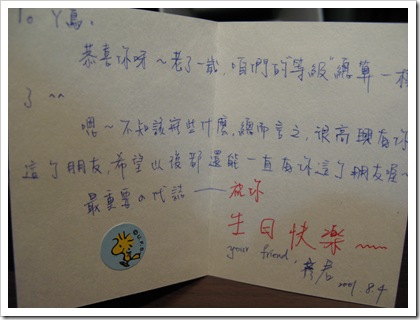 To Y鳥:
恭喜妳呀~老了一歲,咱們的"等級"總算一樣
了 ^^
嗯~不知該寫些什麼,總而言之,很高興有妳
這個朋友,希望以後都還能一直有妳這個朋友喔~
最重要の一句話——祝妳
生日快樂~~
your friend,
彥君
2001. 8.4